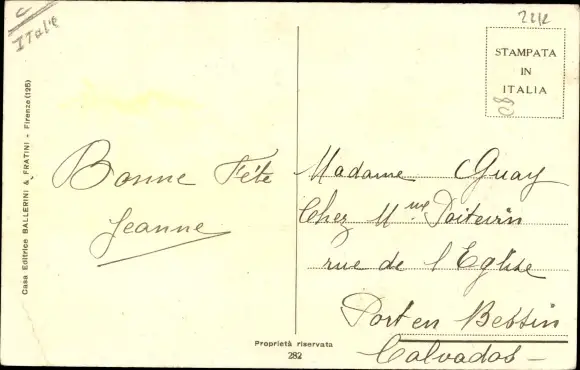 Italie
22/2
STAMPATA
IN
ITALIA
Casa Editrice BALLERINI & FRATINI - Firenze (195)
Bonne Fête
Jeanne
Madame Guay
Chez Mme Poitevin
rue de l'Eglise
Port en Bessin
Calvados -
Proprietà riservata
282